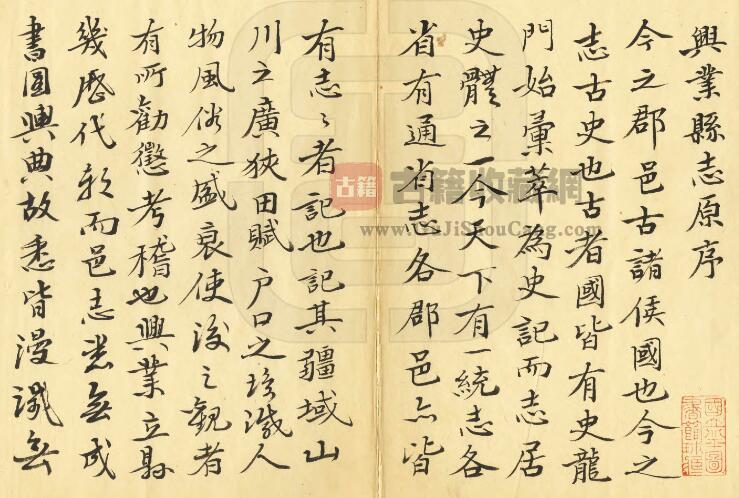 興業縣志原序
今之郡邑古諸侯國也今之
志古史也古者國皆有史龍
門始彙萃為史記而志居
史體之一今天下有一統志各
省有通省志各郡邑亦皆
有志〻者記也記其疆域山
川之廣狹田賦户口之 人
物風俗之盛衰使後之觀者
有所勸懲考稽也興業立縣
幾歷代 而邑志 無成
書圖輿典故悉皆漫 無
古籍
古籍收藏網
www.GuJiShouCang.com